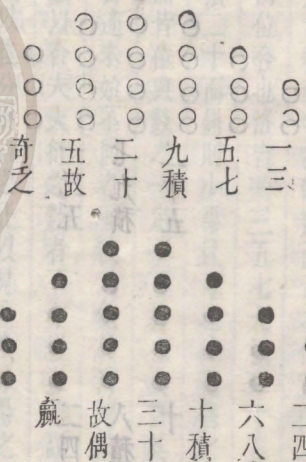 一三
五七
九積
二十
五故
奇乏
二四
六八
十積
三十
故偶
贏